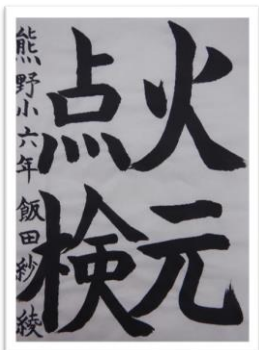 火元
点検
熊野小六年 飯田紗綾